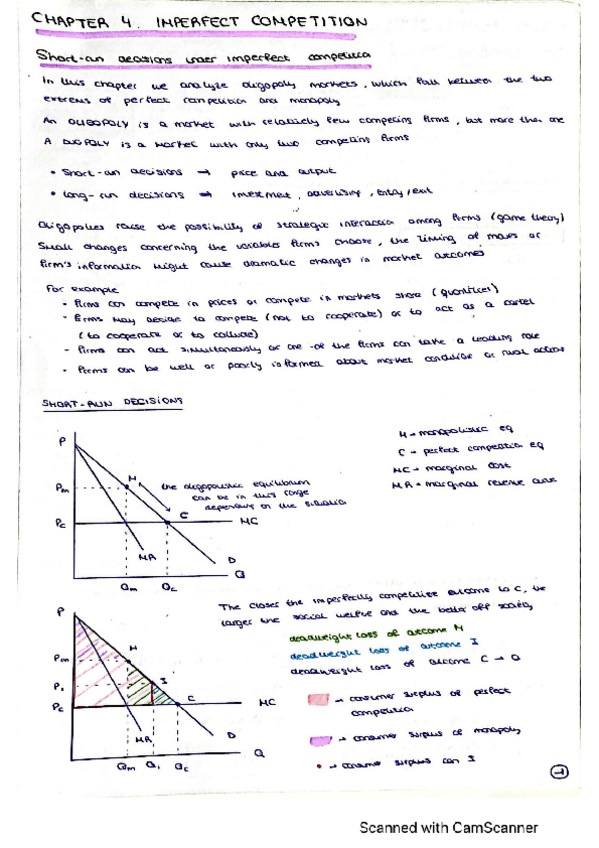 CHAPTER 4. IMPERFECT COMPETITION
Short-run decisions under imperfect competition
In this chapter we analyze oligopoly markets, which fall between the two
extrems of perfect competition and monopoly
An OLIGOPOLY is a market with relatively few competing firms, but more than one
A DUOPOLY is a market with only two competing firms
• Short-run decisions → price and output
• Long-run decisions → investment, advertising, entry/exit
Oligopolies raise the possibility of strategic interaction among firms (game theory)
Small changes concerning the variables firms choose, the timing of moves or
firm's information might cause dramatic changes in market outcomes
For example
- Firms can compete in prices or compete in markets share (quantities)
- Firms may decide to compete (not to cooperate) or to act as a cartel
(to cooperate or to collude)
- Firms can act simultaneously or one of the firms can take a leading role
- Firms can be well or poorly informed about market condition or rival actions
SHORT-RUN DECISIONS
P
M → monopolistic eq
C → perfect competition eq
MC → marginal cost
MR → marginal revenue curve
Pm
M
the oligopolistic equilibrium
can be in this range
depending on the situation
Pc
C
MC
MR
D
Qm
Qc
Q
The closer the imperfectly competitive outcome to C, the
larger the social welfare and the better off society
deadweight loss of outcome M
deadweight loss of outcome I
deadweight loss of outcome C → 0
P
Pm
M
P1
I
Pc
C
MC
MR
D
Qm
Q1
Qc
Q
→ consumer surplus of perfect
competition
→ consumer surplus of monopoly
• → consumer surplus con I
1
Scanned with CamScanner